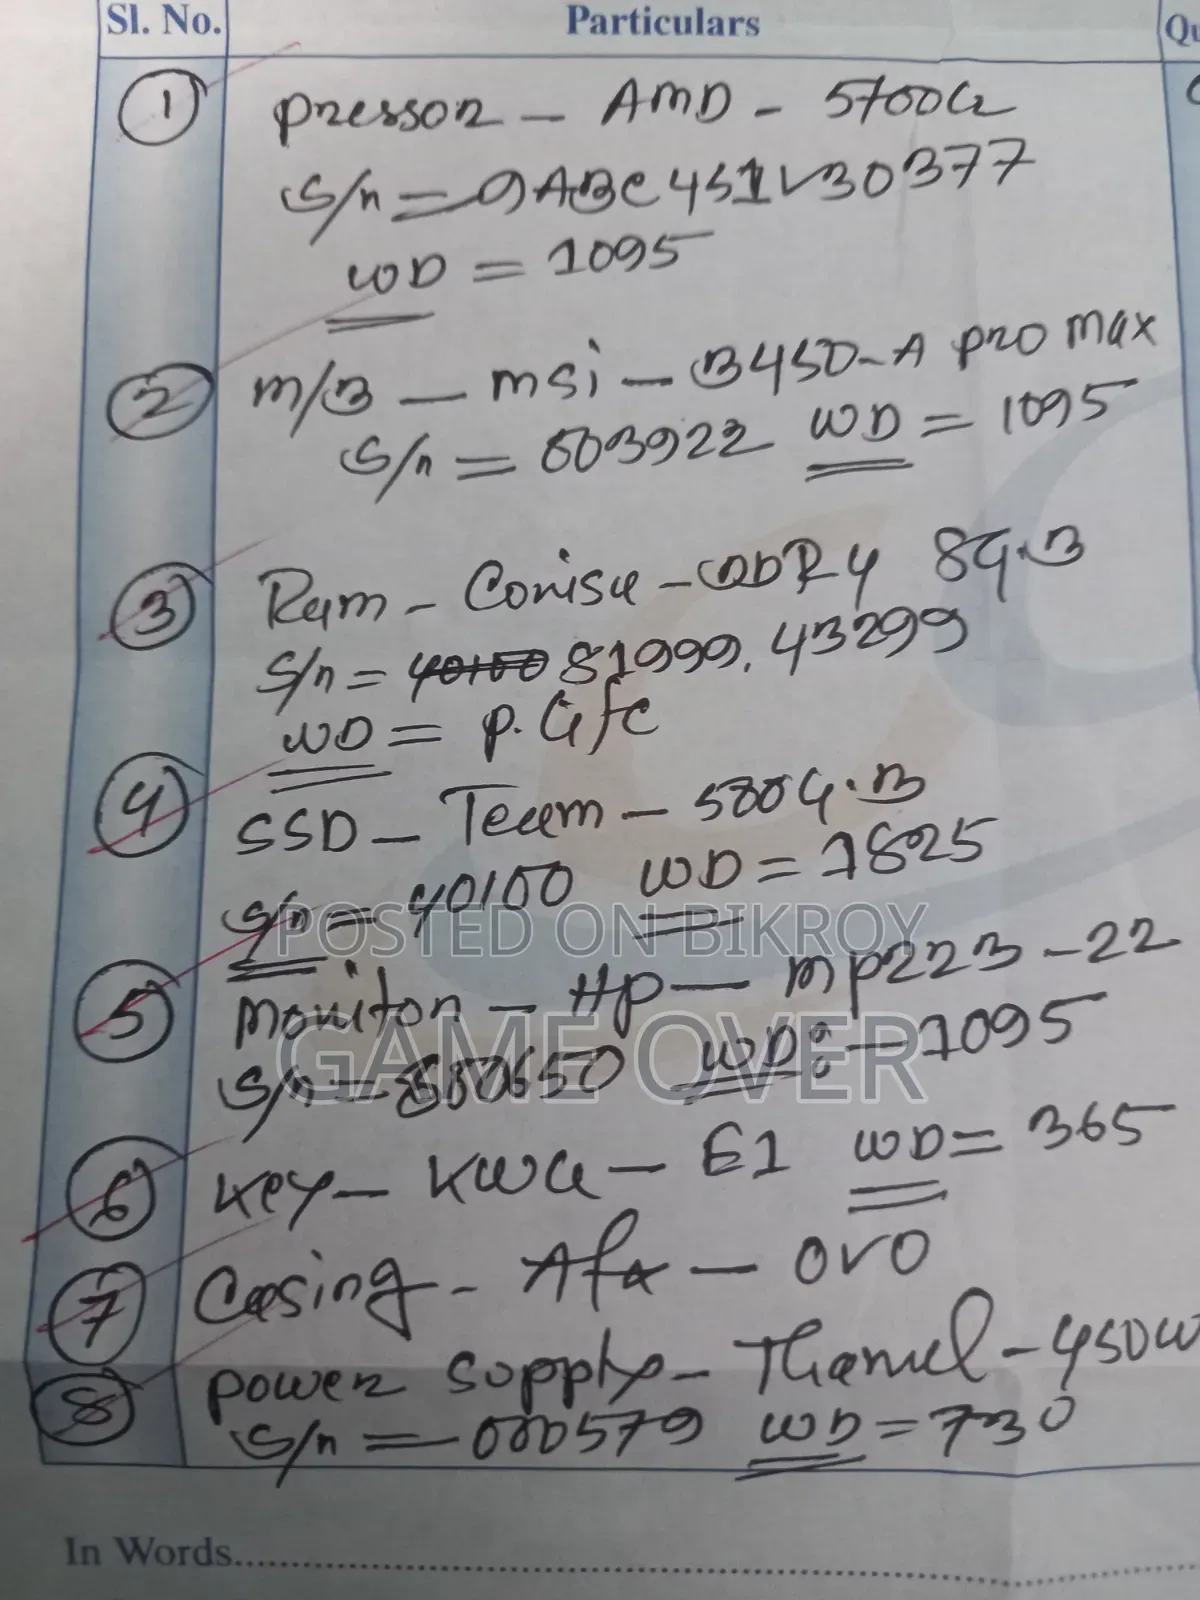 Sl. No. Particulars Qu
1 Pressor - AMD - 5700G
S/n = 9ABC451V30377
WD = 1095
2 M/B - msi - B450-A Pro max
S/n = 603922 WD = 1095
3 Ram - Corisu - DDR4 8G.B
S/n = 40100 81999.43299
WD = P. Gfc
4 SSD - Team - 580G.B
S/n = 40100 WD = 1825
POSTED ON BIKROY
5 Moniton - Hp - MP223-22
GAME OVER
S/n - 880650 WD: - 1095
6 Key - KWG - E1 WD = 365
7 Casing - Afa - OVO
8 Power Supply - Thamel - 450W
S/n = 000579 WD = 730
In Words